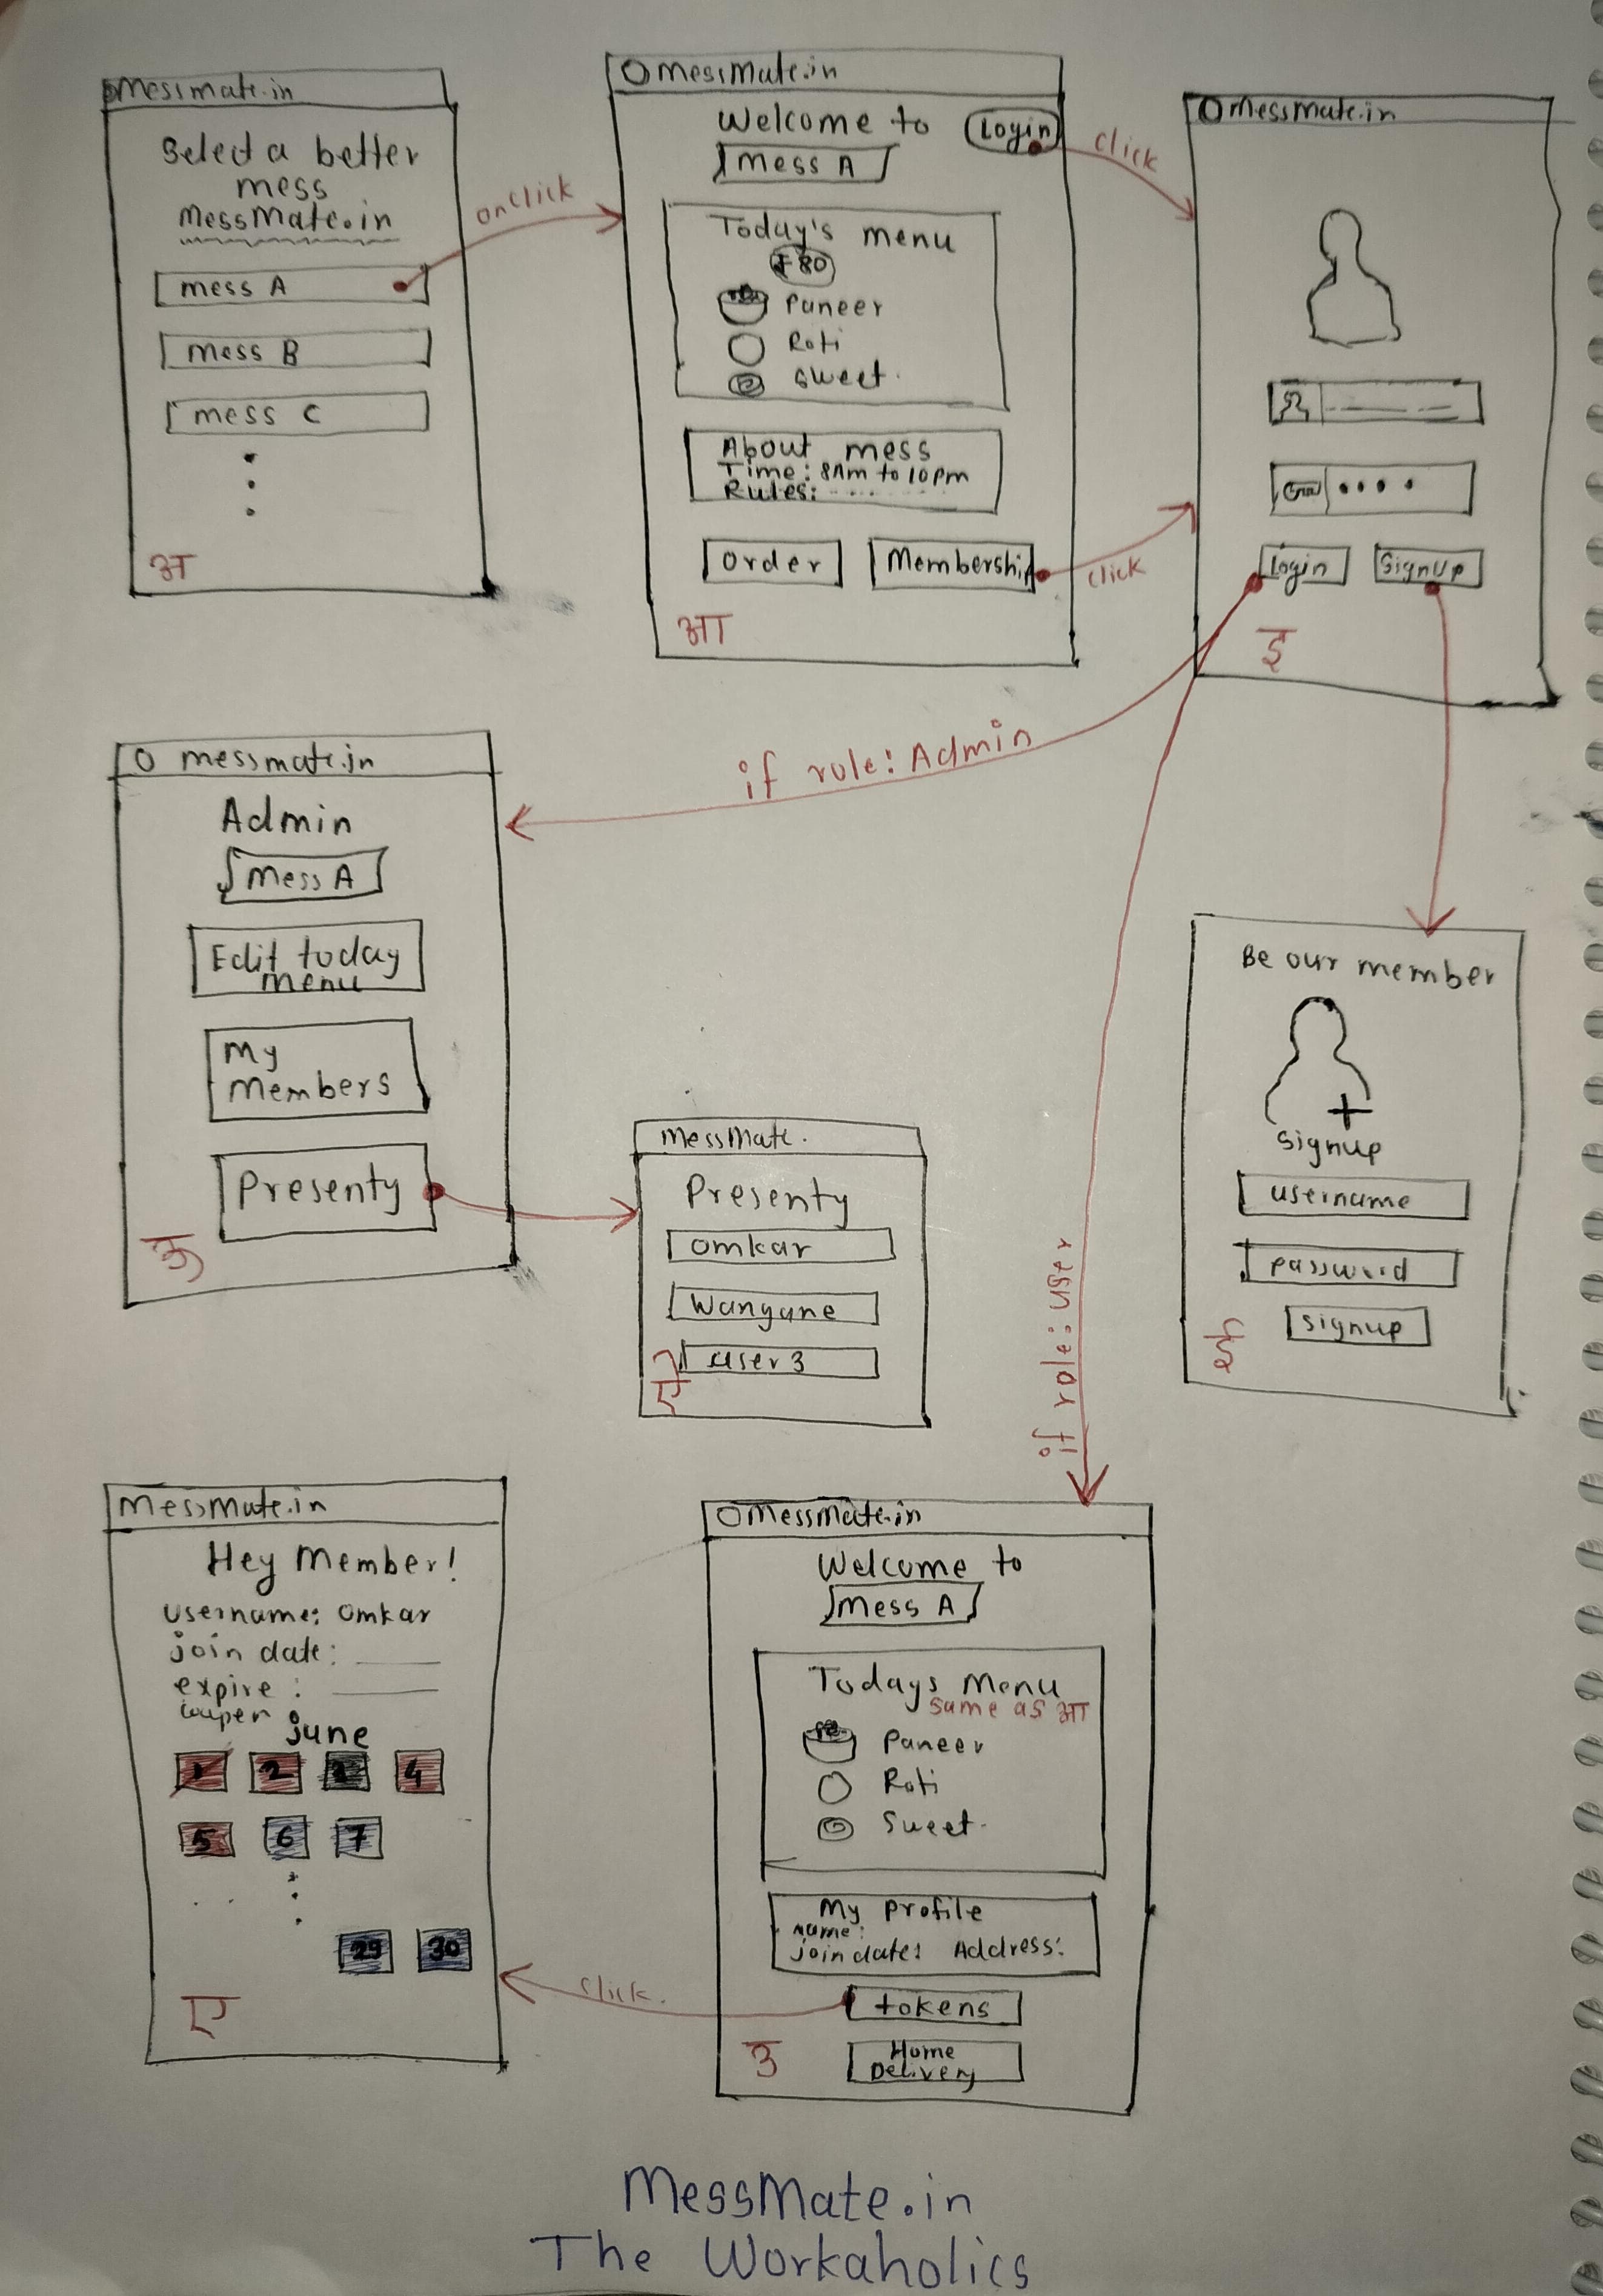 Messmate.in
Select a better
mess
MessMate.in
mess A
mess B
mess C
अ
onclick
MessMate.in
Welcome to
Login
Mess A
Today's menu
₹80
Paneer
Roti
Sweet.
About mess
Time: 8Am to 10pm
Rules:
Order
Membership
आ
click
click
MessMate.in
Login
SignUp
इ
if role: Admin
messmate.in
Admin
Mess A
Edit today
menu
My
Members
Presenty
ऊ
MessMate.
Presenty
omkar
Wangane
user 3
ऐ
if role: user
Be our member
signup
username
password
signup
ई
MessMate.in
Hey Member!
username: Omkar
join date:
expire :
coupen
june
1 2 3 4
5 6 7
29 30
ए
click.
MessMate.in
Welcome to
Mess A
Todays Menu
same as आ
Paneer
Roti
Sweet.
My profile
name:
join date: Address:
tokens
Home
Delivery
उ
MessMate.in
The Workaholics